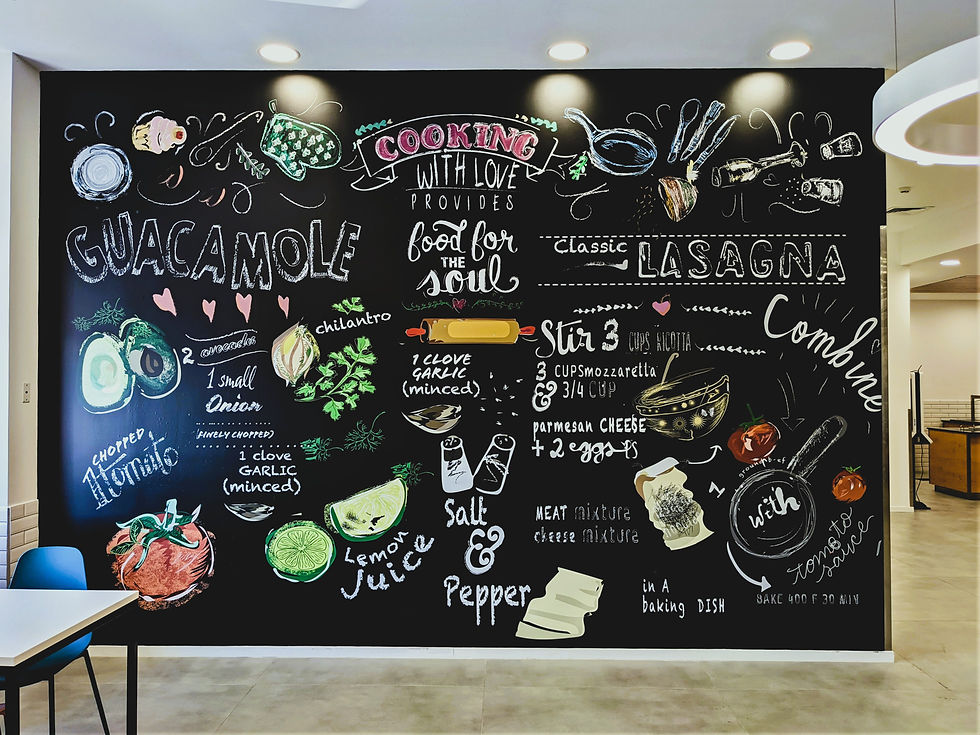 COOKING
WITH LOVE
PROVIDES
food for
THE
soul
GUACAMOLE
chilantro
2 avocados
1 small
Onion
(FINELY CHOPPED)
CHOPPED
1 tomato
1 clove
GARLIC
(minced)
Lemon
Juice
1 CLOVE
GARLIC
(minced)
Salt
&
Pepper
Classic
LASAGNA
Stir 3 CUPS RICOTTA
3 CUPSmozzarella
& 3/4 CUP
parmesan CHEESE
+ 2 eggs
MEAT mixture
cheese mixture
in A
baking DISH
Combine
1
with
tomato
sauce
BAKE 400 F 30 MIN